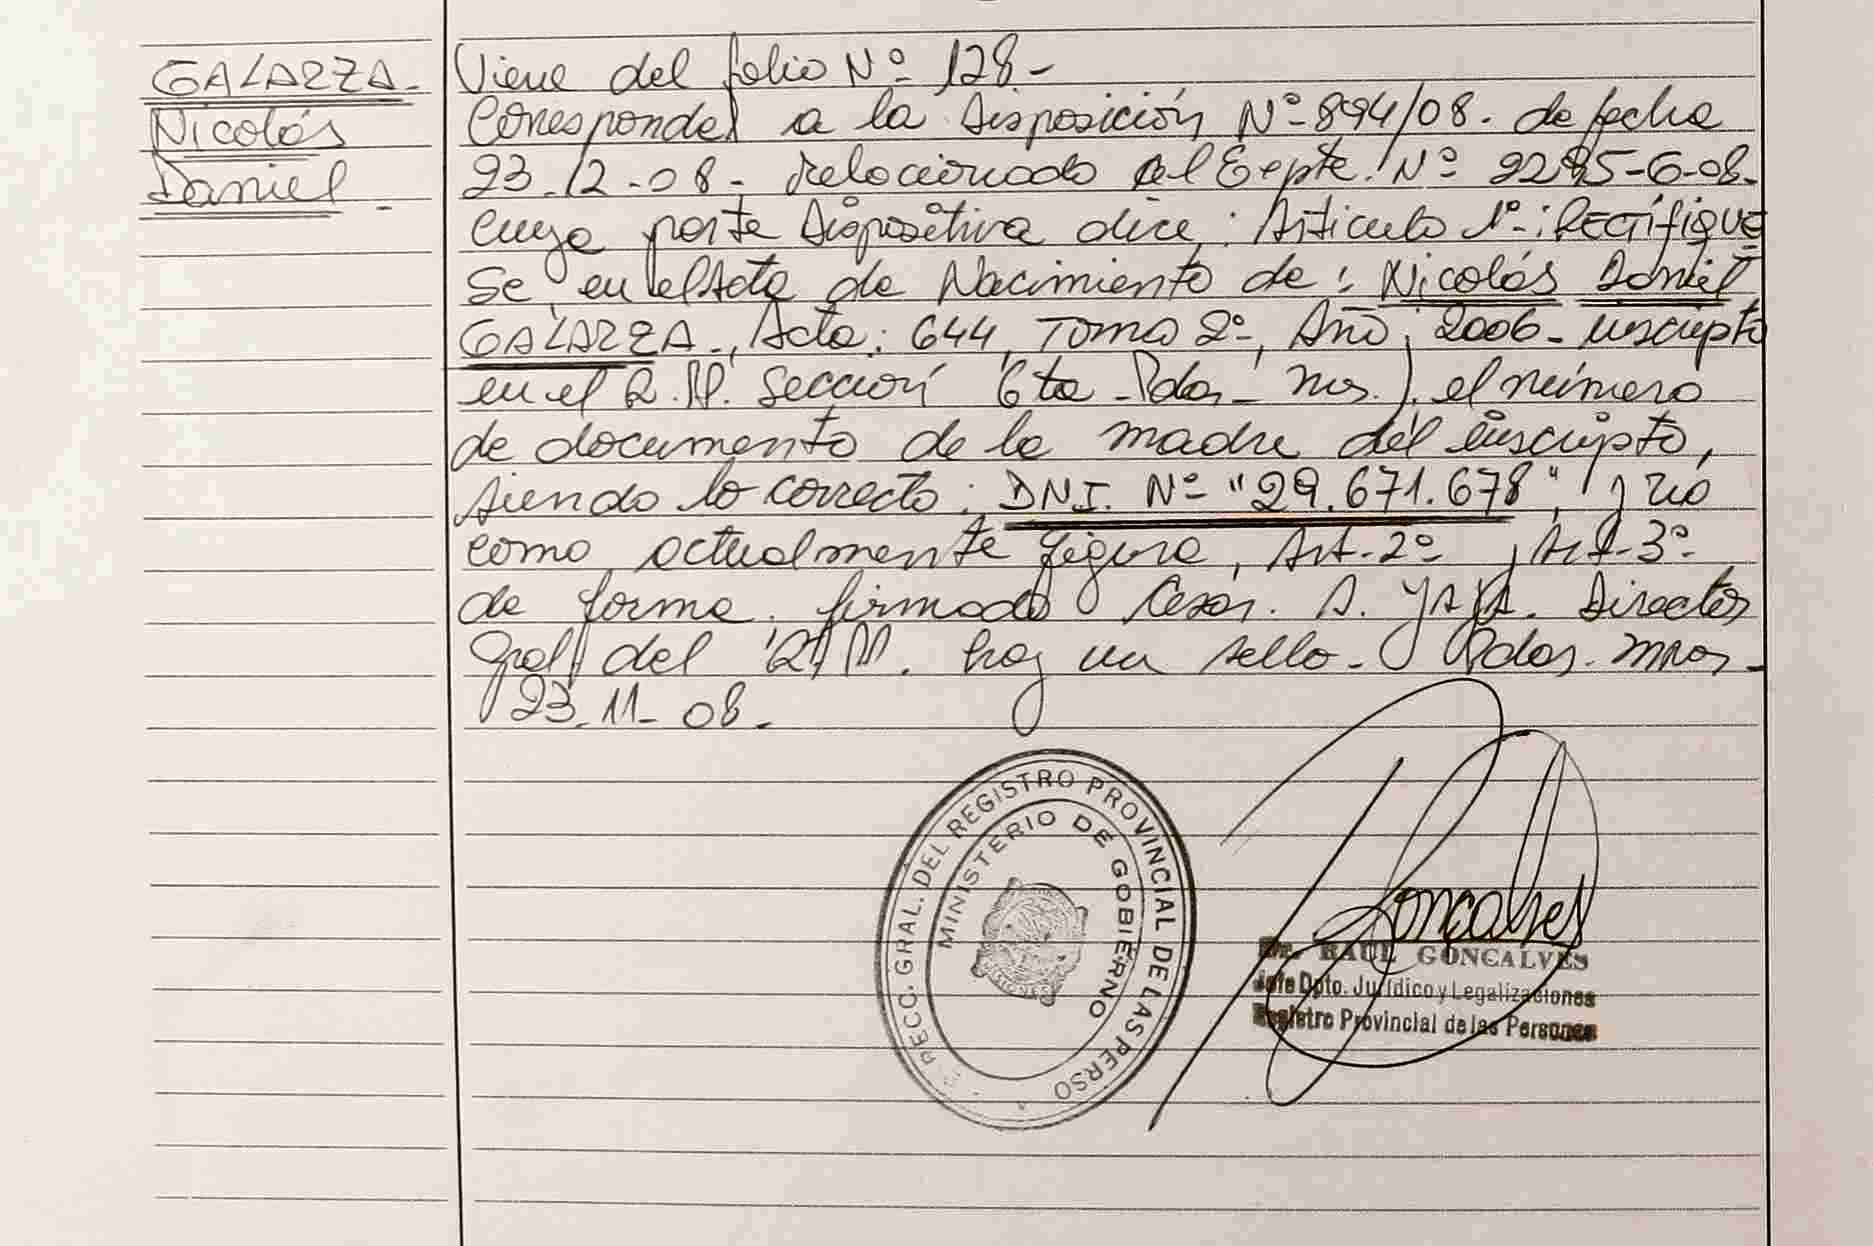 GALARZA.
Nicolás
Daniel.
Viene del folio Nº 128-
Corresponde a la Disposición Nº 894/08. de fecha
23-12-08- Relacionado al Expte. Nº 2295-G-08-
cuya parte Dispositiva dice: Articulo 1º: RECTifiQUE
se, en el Acta de Nacimiento de: Nicolás Daniel
GALARZA, Acta: 644, Tomo 2º, Año, 2006- inscripto
en el R.P. Sección 6ta - Pdas - Ms.), el número
de documento de la madre del inscripto,
siendo lo correcto: DNI. Nº "29.671.678", y no
como actualmente figura, Art-2º, Art-3º
de forma. firmado Cesar. A. YAYA. Director
Gral del R.P. hay un sello- Pdas. mnas-
23-11-08-
DIRECC. GRAL. DEL REGISTRO PROVINCIAL DE LAS PERSO
MINISTERIO DE GOBIERNO
MISIONES
Goncalves
Dr. RAUL GONCALVES
Jefe Dpto. Jurídico y Legalizaciones
Registro Provincial de las Personas